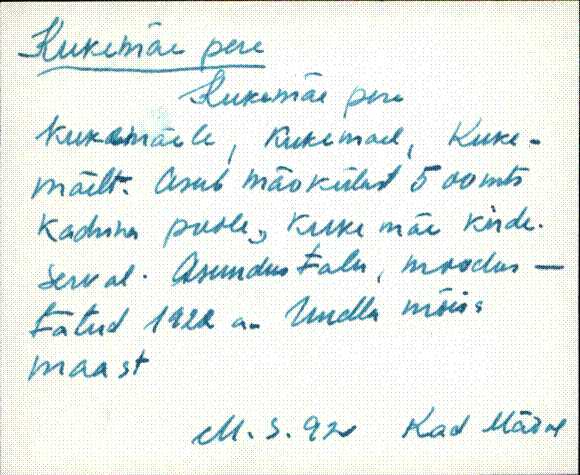 Kukemäe pere
Kukemäe pere
Kukemäele, Kukemäel, Kuke-
mäelt. Asub Mäokülast 500 mts
Kadrina poole, Kuke mäe kirde.
serval. Asundus talu, moodus-
tatud 1922 a. Undla mõis
maast
M. S. 92 Kad